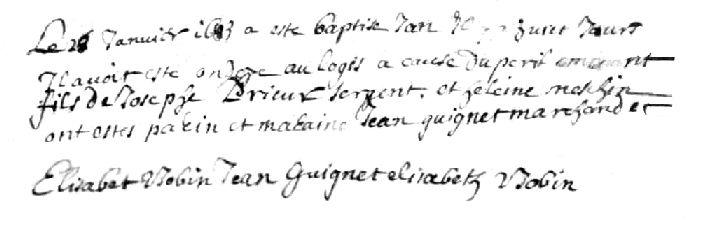 Le 28 Janvier 1683 a este baptise Jan jours
Il avoit este ondoye au logis a cause du peril eminant
fils de Josephe Brieux sergent, et heleine
ont estes parin et maraine Jean guignet marchand et
Elisabet Robin Jean Guignet elisabeth Robin